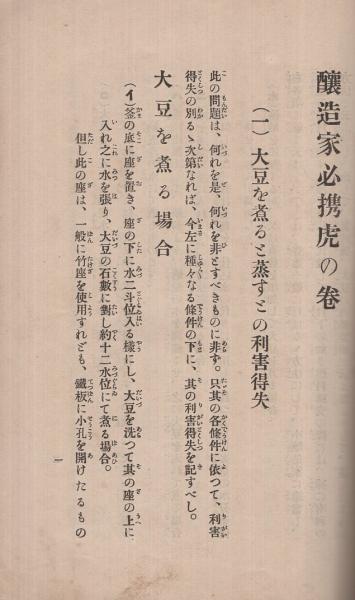 釀造家必携虎の卷
(一) 大豆を煮ると蒸すとの利害得失
此の問題は、何れを是、何れを非とすべきものに非ず。只其の各條件に依つて、利害
得失の別るゝ次第なれば、今左に種々なる條件の下に、其の利害得失を記すべし。
大豆を煮る場合
(イ)釜の底に座を置き、座の下に水二斗位入る樣にし、大豆を洗つて其の座の上に
入れ之に水を張り、大豆の石數に對し約十二水位にて煮る場合。
但し此の座は、一般に竹座を使用すれども、鐵板に小孔を開けたるもの
一